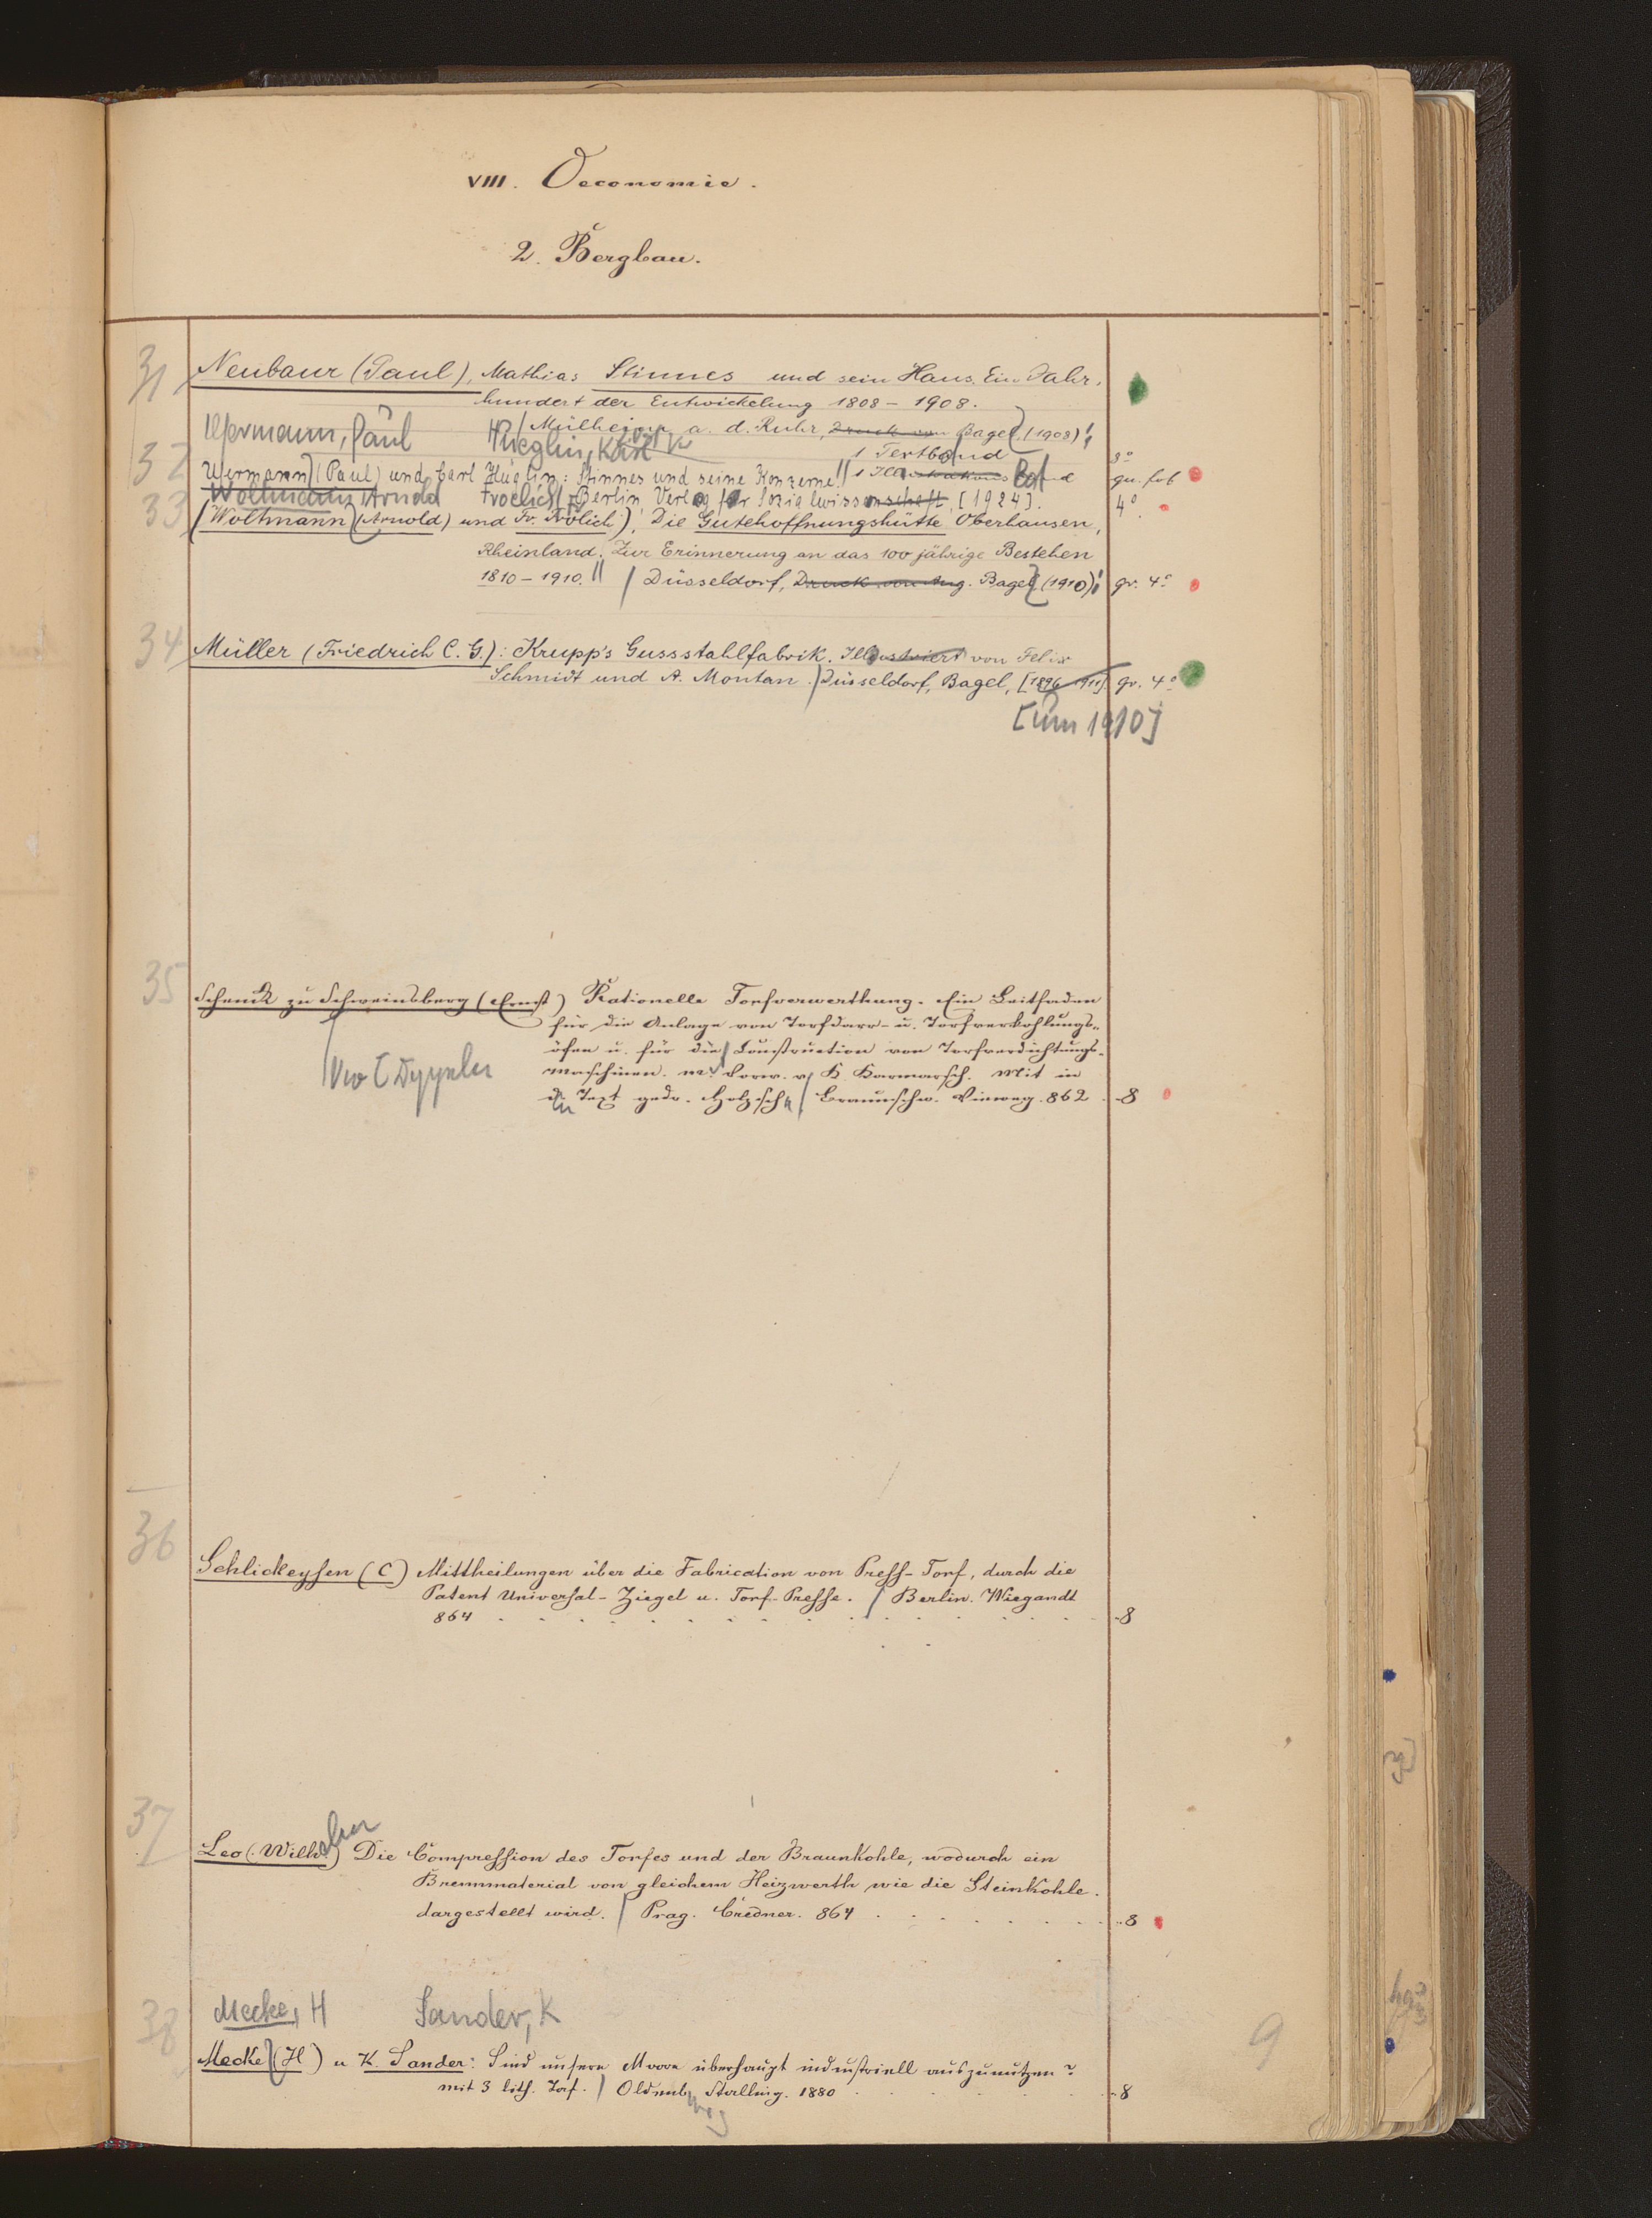 VIII. Oeconomie.
2. Bergbau.
31 Neubaur (Paul), Mathias Stinnes und sein Haus. Ein Jahr-
hundert der Entwickelung 1808 - 1908.
/ Mülheim a. d. Ruhr, Druck von Bagel, (1908)
Ufermann, Paul
1 Textband 8°
32 Ufermann (Paul) und Carl Hüglin: Stinnes und seine Konzerne. // 1 Illustrations Bd qu. fol
Woltmann, Arnold Froelich, Fr Berlin, Verlag für Sozialwissenschaft, [1924]. 4°.
33 (Woltmann (Arnold) und Fr. Frölich), Die Gutehoffnungshütte Oberhausen,
Rheinland. Zur Erinnerung an das 100 jährige Bestehen
1810 - 1910. // / Düsseldorf, Druck von Aug. Bagel (1910) gr. 4°
34 Müller (Friedrich C. G.): Krupp's Gussstahlfabrik. Illustriert von Felix
Schmidt und A. Montan. / Düsseldorf, Bagel, [1896 gr. 4°
[um 1910]
35 Schenck zu Schweinsberg (Ernst) Rationelle Torfverwerthung. Ein Leitfaden
für die Anlage von Torfdarr- u. Torfverkohlungs-
öfen u. für die Construction von Torfverdichtungs-
maschinen. m. Vorw. v. K. Karmarsch. Mit in
d. Text gedr. Holzsch / Braunschw. Vieweg. 862 8
36 Schlickeysen (C) Mittheilungen über die Fabrication von Press-Torf, durch die
Patent Universal-Ziegel u. Torf-Presse. / Berlin. Wiegandt
864 8
37 Leo (Wilhelm) Die Compression des Torfes und der Braunkohle, wodurch ein
Brennmaterial von gleichem Heizwerth wie die Steinkohle
dargestellt wird. / Prag. Credner. 864 8
Mecke, H Sander, K
38 Mecke (H) u K. Sander: Sind unsere Moore überhaupt industriell auszunutzen?
mit 3 lith. Taf. / Oldenburg Stalling. 1880 8
9